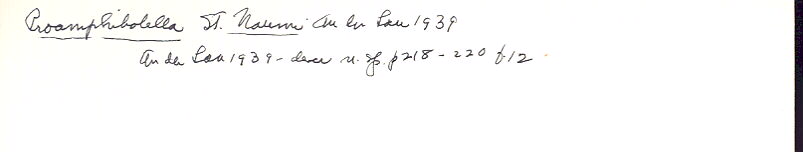 Proamphibolella St. Naumi An der Lan 1939
An der Lan 1939 - descr n. sp. p 218 - 220 f 12